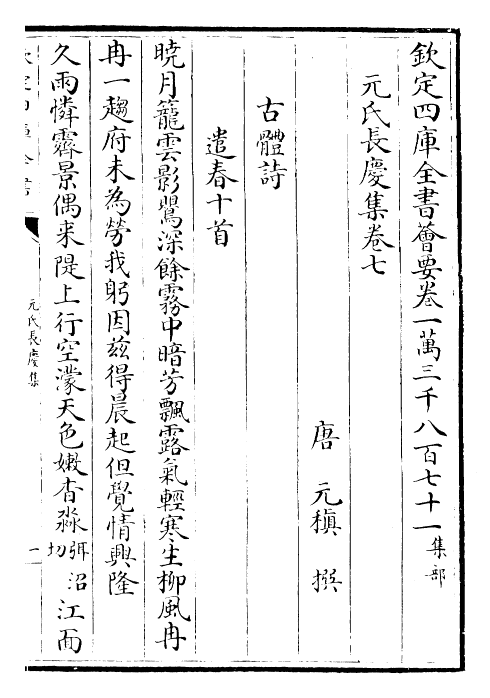 欽定四庫全書薈要卷一萬三千八百七十一集部
元氏長慶集卷七
唐 元稹 撰
古體詩
遣春十首
曉月籠雲影鶯深餘霧中暗芳飄露氣輕寒生柳風冉
冉一趨府未為勞我躬因兹得晨起但覺情興隆
久雨憐霽景偶来隄上行空濛天色嫩杳淼弭沼切江面
元氏長慶集
一